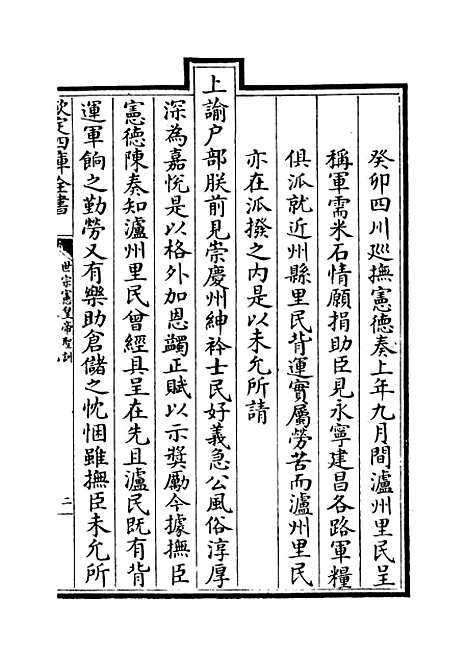 癸卯四川巡撫憲德奏上年九月間瀘州里民呈
稱軍需米石情願捐助臣見永寧建昌各路軍糧
俱派就近州縣里民背運實屬勞苦而瀘州里民
亦在派撥之内是以未允所請
上諭户部朕前見崇慶州紳衿士民好義急公風俗淳厚
深為嘉悦是以格外加恩蠲正賦以示獎勵今據撫臣
憲德陳奏知瀘州里民曾經具呈在先且瀘民既有背
運軍餉之勤勞又有樂助倉儲之忱悃雖撫臣未允所
欽定四庫全書
世宗憲皇帝聖訓
二